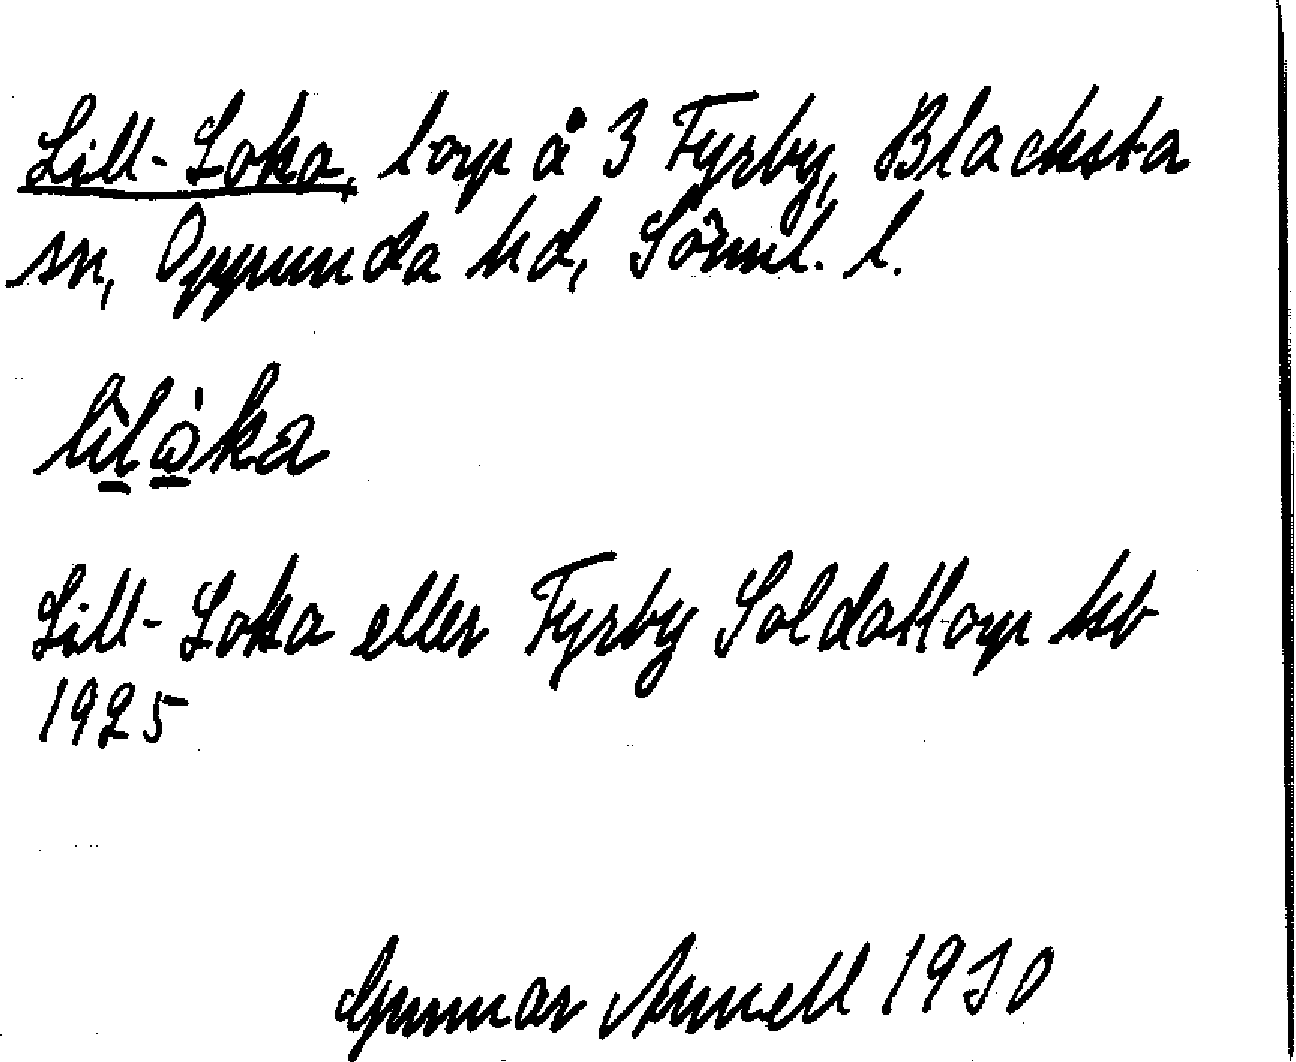 Lill-Loka, torp å 3 Fyrby, Blacksta
sn, Oppunda hd, Södml. l.
Lill-Loka eller Fyrby Soldattorp kb
1925
Gunnar Arnell 1930